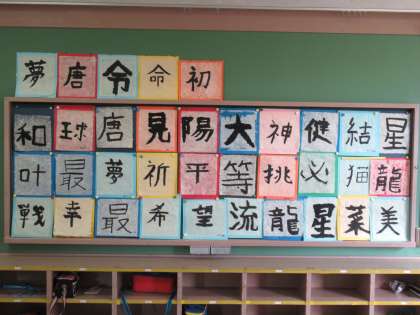 夢唐令命初
和球唐見陽大神健結星
叶最夢祈平等挑必猫龍
戦幸最希望流龍星菜美